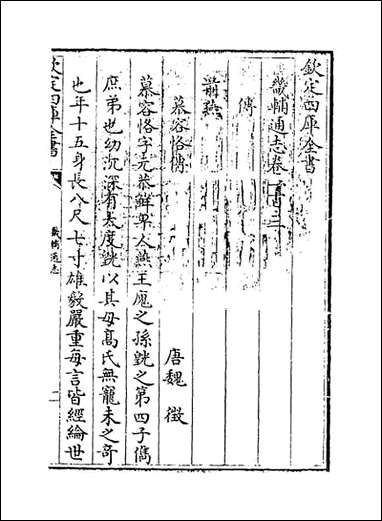 欽定四庫全書
畿輔通志卷一百三
傳
前燕
慕容恪傳
唐魏徵
慕容恪字元恭鮮卑人燕王廆之孫皝之第四子儁
庶弟也幼沉深有大度皝以其母髙氏無寵未之竒
也年十五身長八尺七寸雄毅嚴重每言皆經綸世
欽定四庫全書
畿輔通志